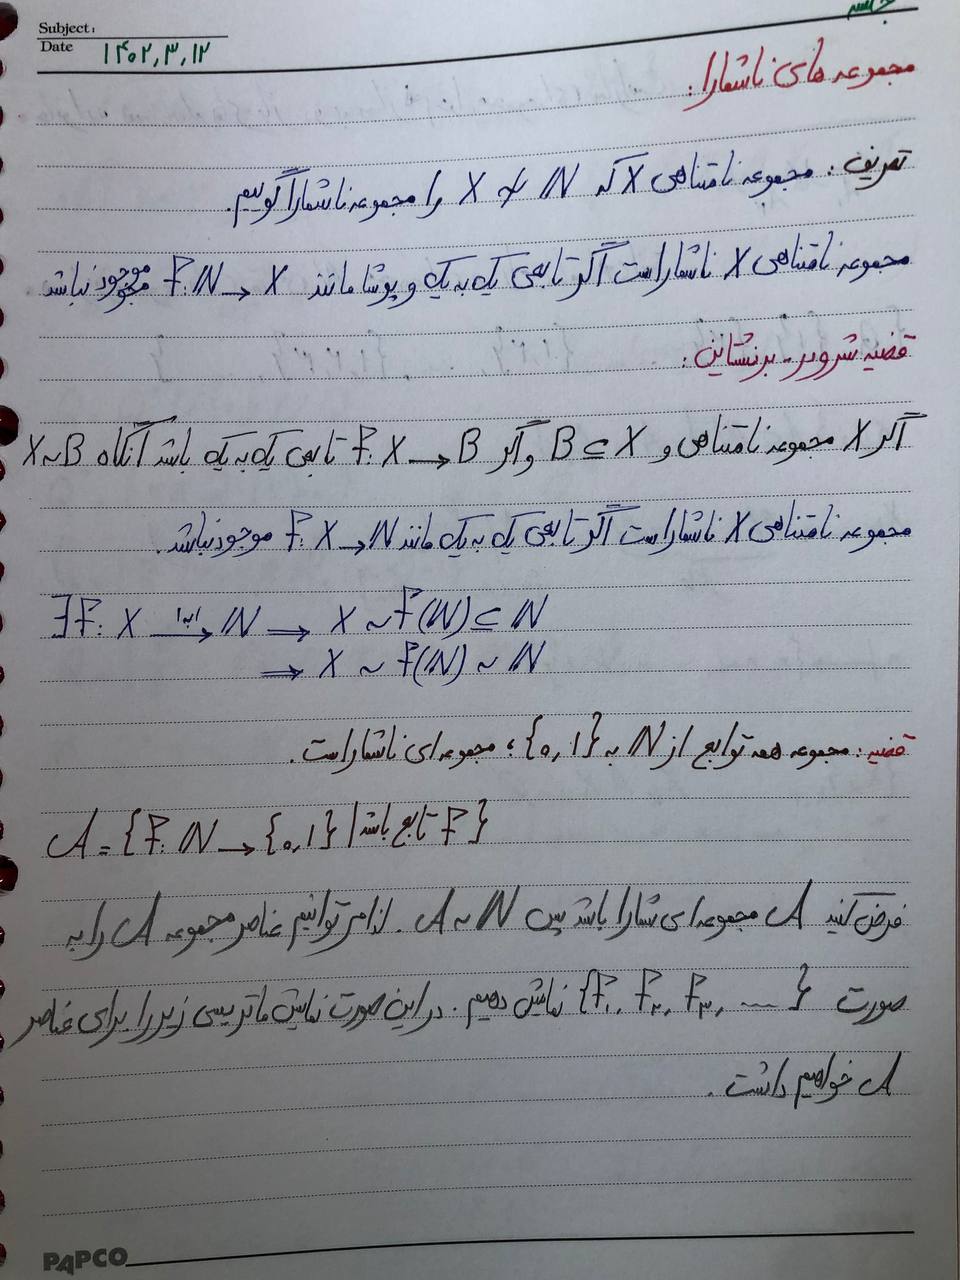 Subject:
Date ۱۴۰۲,۳,۱۲
جلسه
مجموعه های ناشمارا:
تعریف: مجموعه نامتناهی X که X ≁ ℕ را مجموعه ناشمارا گوییم.
مجموعه نامتناهی X ناشماراست اگر تابعی یک به یک و پوشا مانند f: ℕ → X موجود نباشد
قضیه شرودر - برنشتاین:
اگر X مجموعه نامتناهی و B ⊆ X و اگر f: X → B تابعی یک به یک باشد آنگاه X ~ B
مجموعه نامتناهی X ناشماراست اگر تابعی یک به یک مانند f: X → ℕ موجود نباشد.
∃f: X —۱به۱→ ℕ ⇒ X ~ f(ℕ) ⊆ ℕ
⇒ X ~ f(ℕ) ~ ℕ
قضیه: مجموعه همه توابع از ℕ به {۰,۱}، مجموعه ای ناشماراست.
A = {f: ℕ → {۰,۱} | f تابع باشد}
فرض کنید A مجموعه ای شمارا باشد پس A ~ ℕ. لذا می توانیم عناصر مجموعه A را به
صورت {f₁, f₂, f₃, ...} نمایش دهیم. در این صورت نمایش ماتریسی زیر را برای عناصر
A خواهیم داشت.
PAPCO